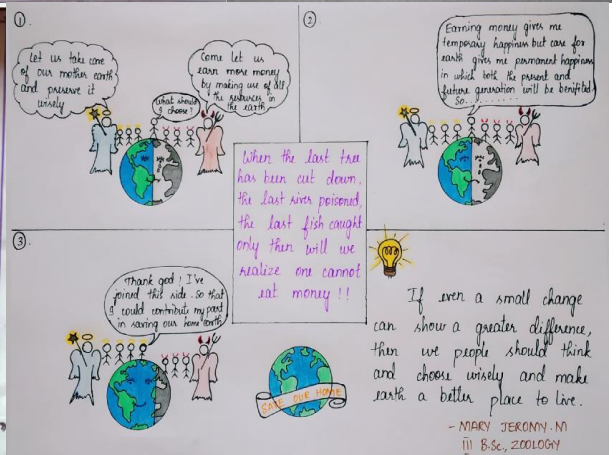 ①
Let us take care
of our mother earth
and preserve it
wisely
What should
I choose?
Come let us
earn more money
by making use of all
the resources in
the earth
②
Earning money gives me
temporary happiness but care for
earth gives me permanent happiness
in which both the present and
future generation will be benifited
So..........
When the last tree
has been cut down,
the last river poisoned,
the last fish caught
only then will we
realize one cannot
eat money !!
③
Thank god! I've
joined this side. So that
I could contribute my part
in saving our home earth
SAVE OUR HOME
If even a small change
can show a greater difference,
then we people should think
and choose wisely and make
earth a better place to live.
- MARY JEROMY.M
III B.Sc., ZOOLOGY